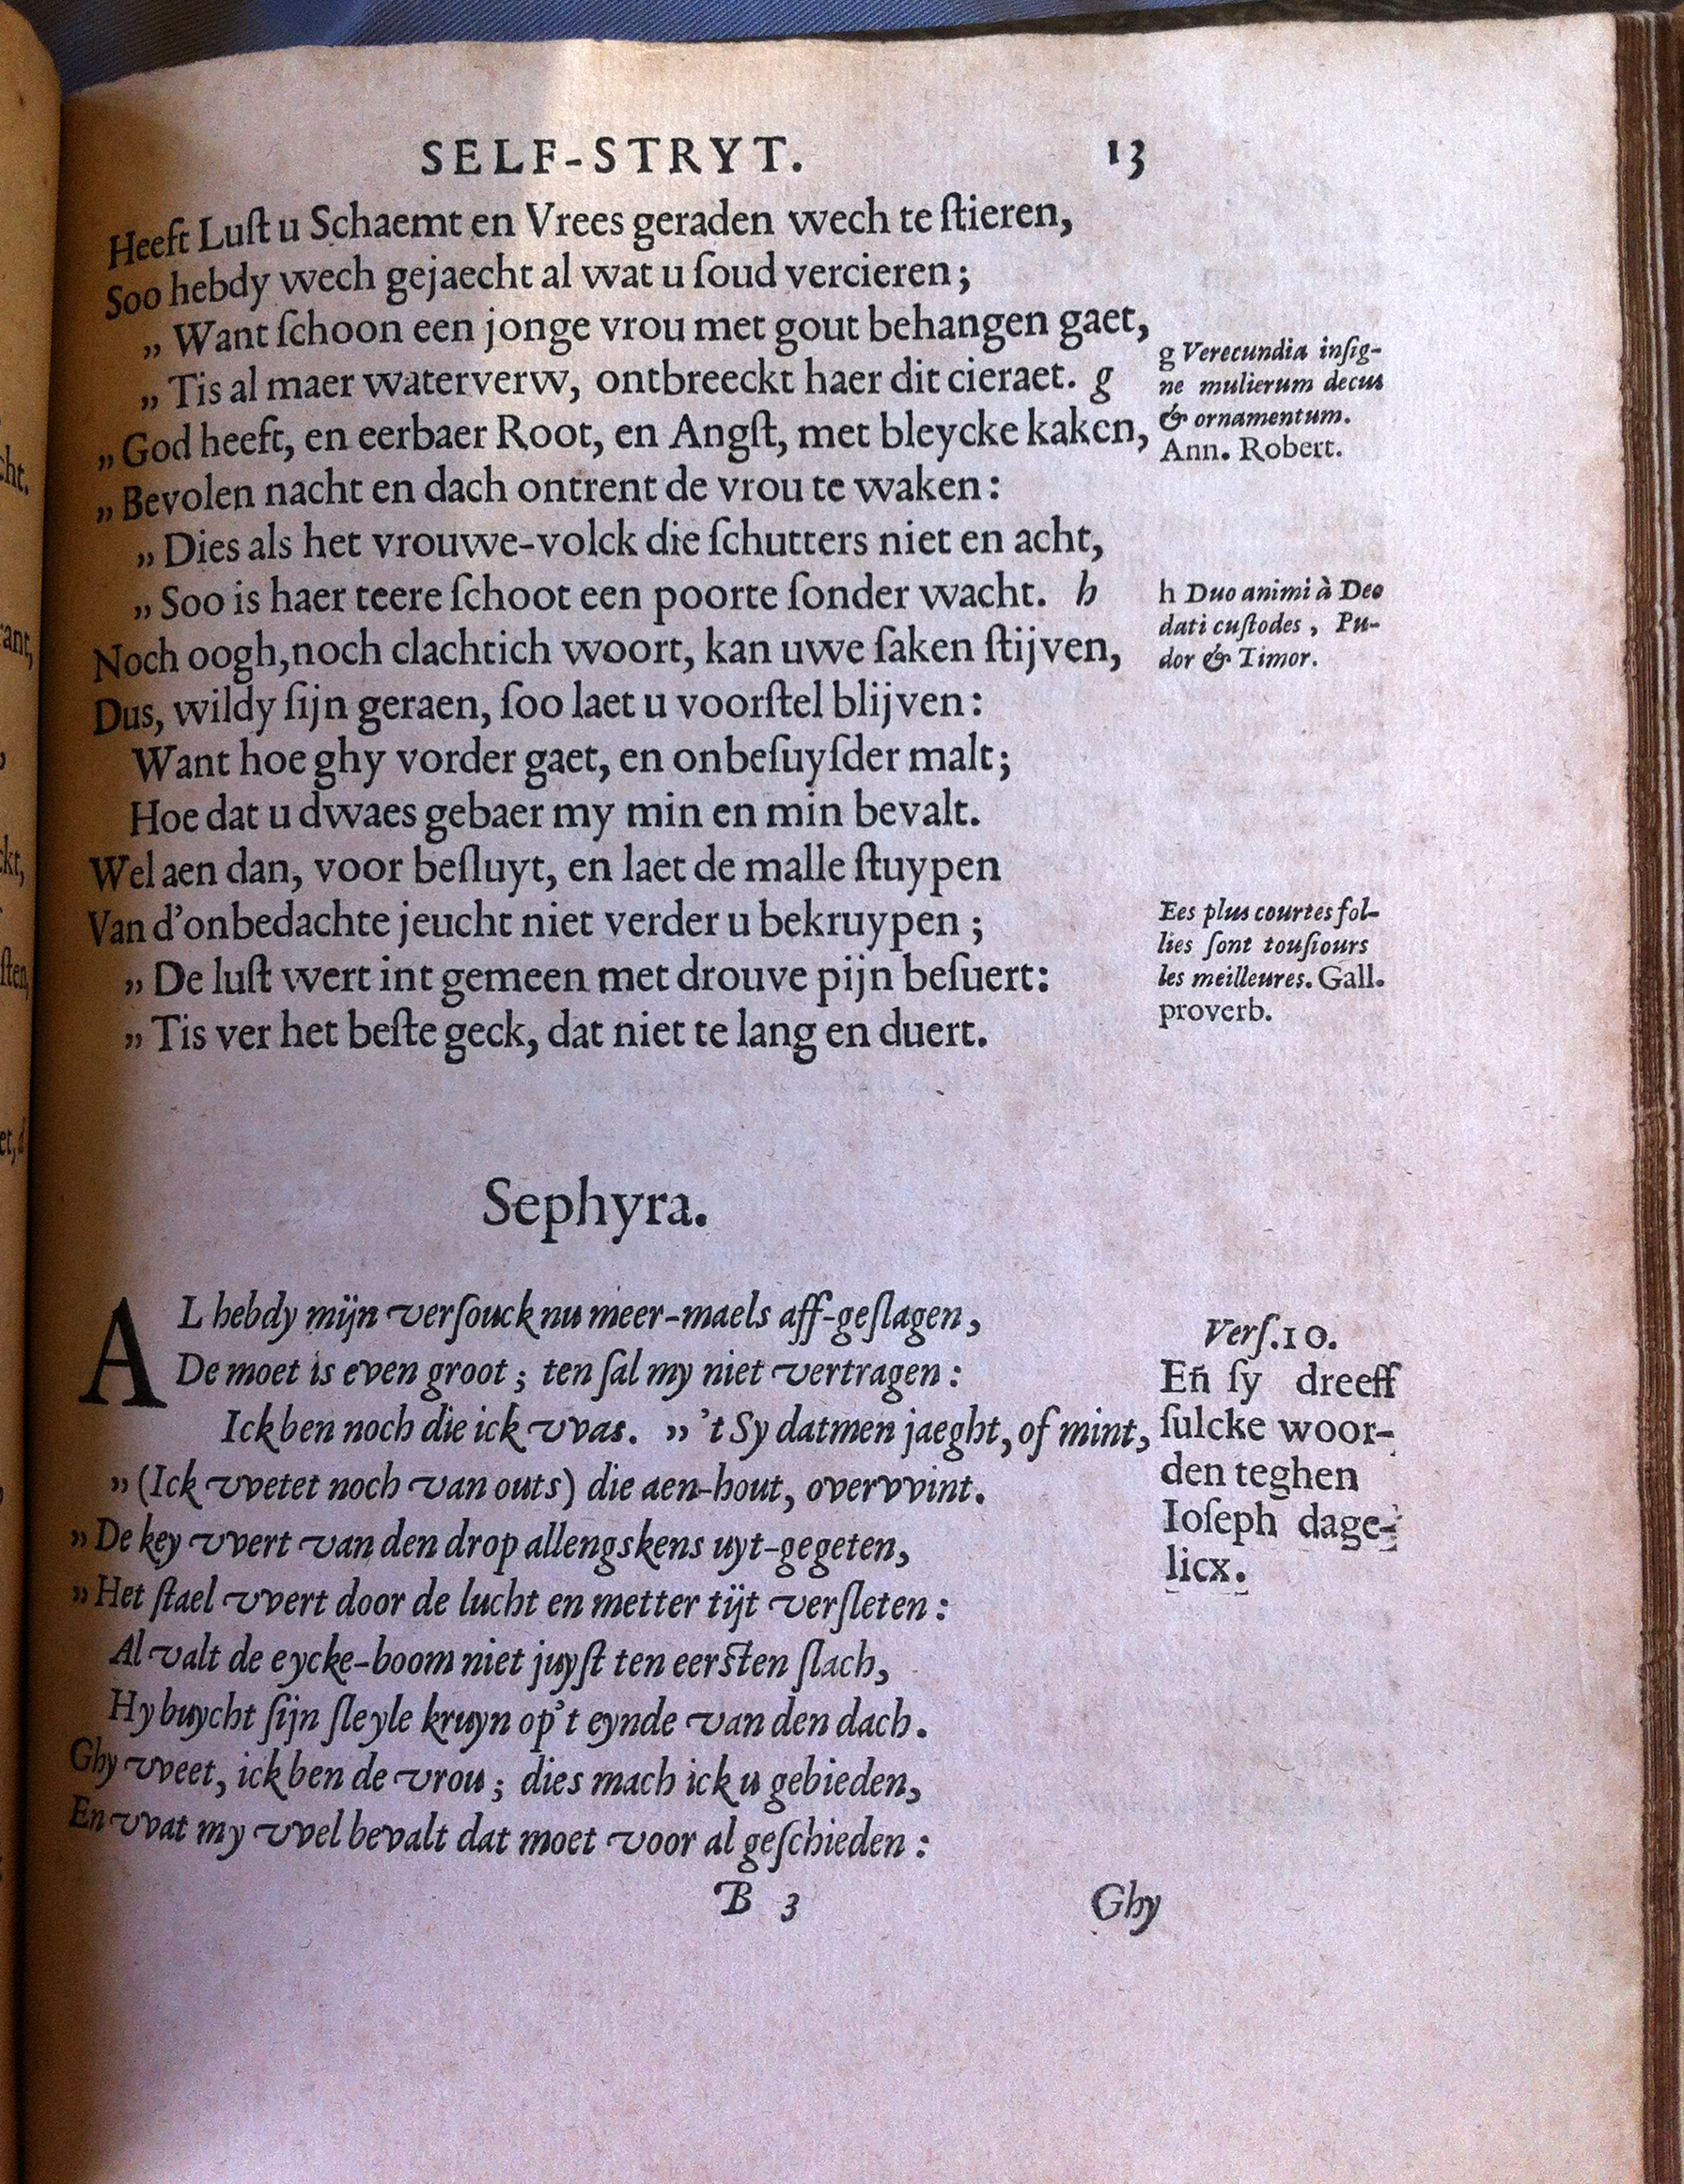 SELF-STRYT. 13
Heeft Luſt u Schaemt en Vrees geraden wech te ſtieren,
Soo hebdy wech gejaecht al wat u ſoud vercieren;
„ Want ſchoon een jonge vrou met gout behangen gaet,
„ Tis al maer waterverw, ontbreeckt haer dit cieraet. g
„ God heeft, en eerbaer Root, en Angſt, met bleycke kaken,
„ Bevolen nacht en dach ontrent de vrou te waken:
„ Dies als het vrouwe-volck die ſchutters niet en acht,
„ Soo is haer teere ſchoot een poorte ſonder wacht. h
Noch oogh, noch clachtich woort, kan uwe ſaken ſtijven,
Dus, wildy ſijn geraen, ſoo laet u voorſtel blijven:
Want hoe ghy vorder gaet, en onbeſuyſder malt;
Hoe dat u dwaes gebaer my min en min bevalt.
Wel aen dan, voor beſluyt, en laet de malle ſtuypen
Van d'onbedachte jeucht niet verder u bekruypen;
„ De luſt wert int gemeen met drouve pijn beſuert:
„ Tis ver het beſte geck, dat niet te lang en duert.
g Verecundia inſig-
ne mulierum decus
& ornamentum.
Ann. Robert.
h Duo animi à Deo
dati cuſtodes, Pu-
dor & Timor.
Ees plus courtes fol-
lies ſont touſiours
les meilleures. Gall.
proverb.
Sephyra.
AL hebdy mijn verſouck nu meer-maels aff-geſlagen,
De moet is even groot; ten ſal my niet vertragen:
Ick ben noch die ick vvas. „ 't Sy datmen jaeght, of mint,
„ (Ick vvetet noch van outs) die aen-hout, overvvint.
„ De key vvert van den drop allengskens uyt-gegeten,
„ Het ſtael vvert door de lucht en metter tijt verſleten:
Al valt de eycke-boom niet juyſt ten eerſten ſlach,
Hy buycht ſijn ſleyle kruyn op't eynde van den dach.
Ghy vveet, ick ben de vrou; dies mach ick u gebieden,
En vvat my vvel bevalt dat moet voor al geſchieden:
Verſ. 10.
En̄ ſy dreeff
ſulcke woor-
den teghen
Ioſeph dage-
licx.
B 3 Ghy